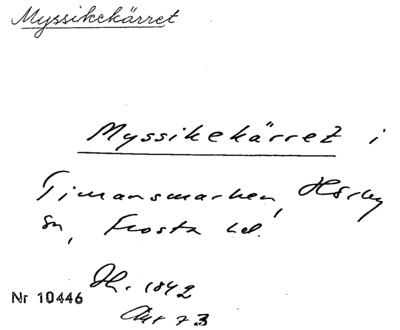 Myssikekärret
Myssikekärret i
Timansmarken, Hörby
sn, Frosta hd.
Nr 10446
1842
Akt 73